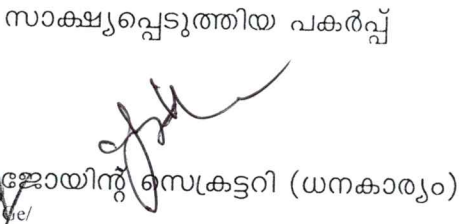 സാക്ഷ്യപ്പെടുത്തിയ പകർപ്പ്
ജോയിന്റ് സെക്രട്ടറി (ധനകാര്യം)
Ge/